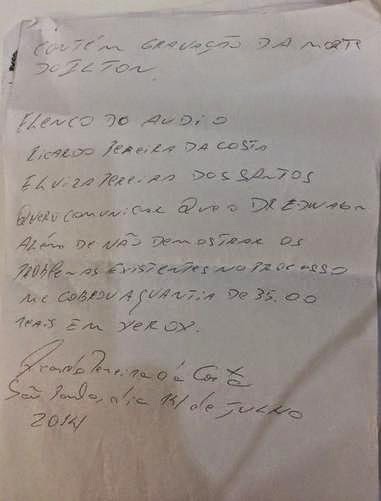 CONTÉM GRAVAÇÃO DA MORTE
DO ILTON.
ELENCO DO AUDIO
RICARDO PEREIRA DA COSTA
ELVIRA PEREIRA DOS SANTOS
QUERO COMUNICAR QUE O DR EDWAGN
ALÉM DE NÃO DEMOSTRAR OS
PROBLEMAS EXISTENTES NO PROCESSO
ME COBROU A QUANTIA DE 35.00
REAIS EM XEROX.
Ricardo Pereira da Costa
São Paulo, dia 14 de JULHO
2014